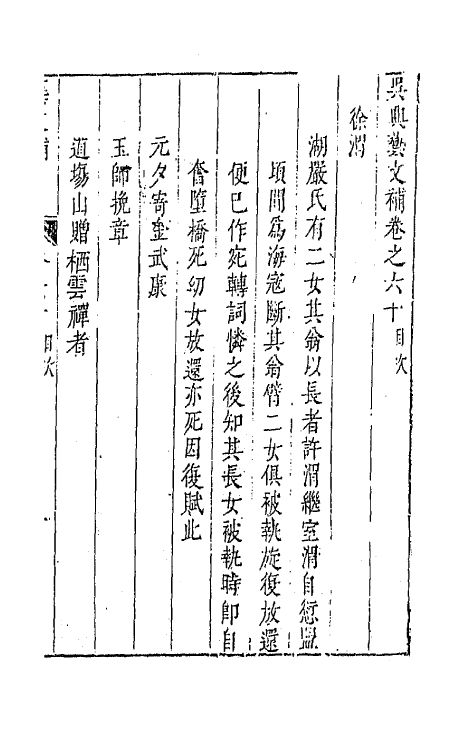 吳興藝文補卷之六十目次
徐渭
湖嚴氏有二女其翁以長者許渭繼室渭自愆盟
頃聞爲海寇斷其翁臂二女俱被執旋復放還
便已作宛轉詞憐之後知其長女被執時卽自
奮墮橋死幼女放還亦死因復賦此
元夕寄金武康
玉師挽章
道場山贈栖雲禪者
目次